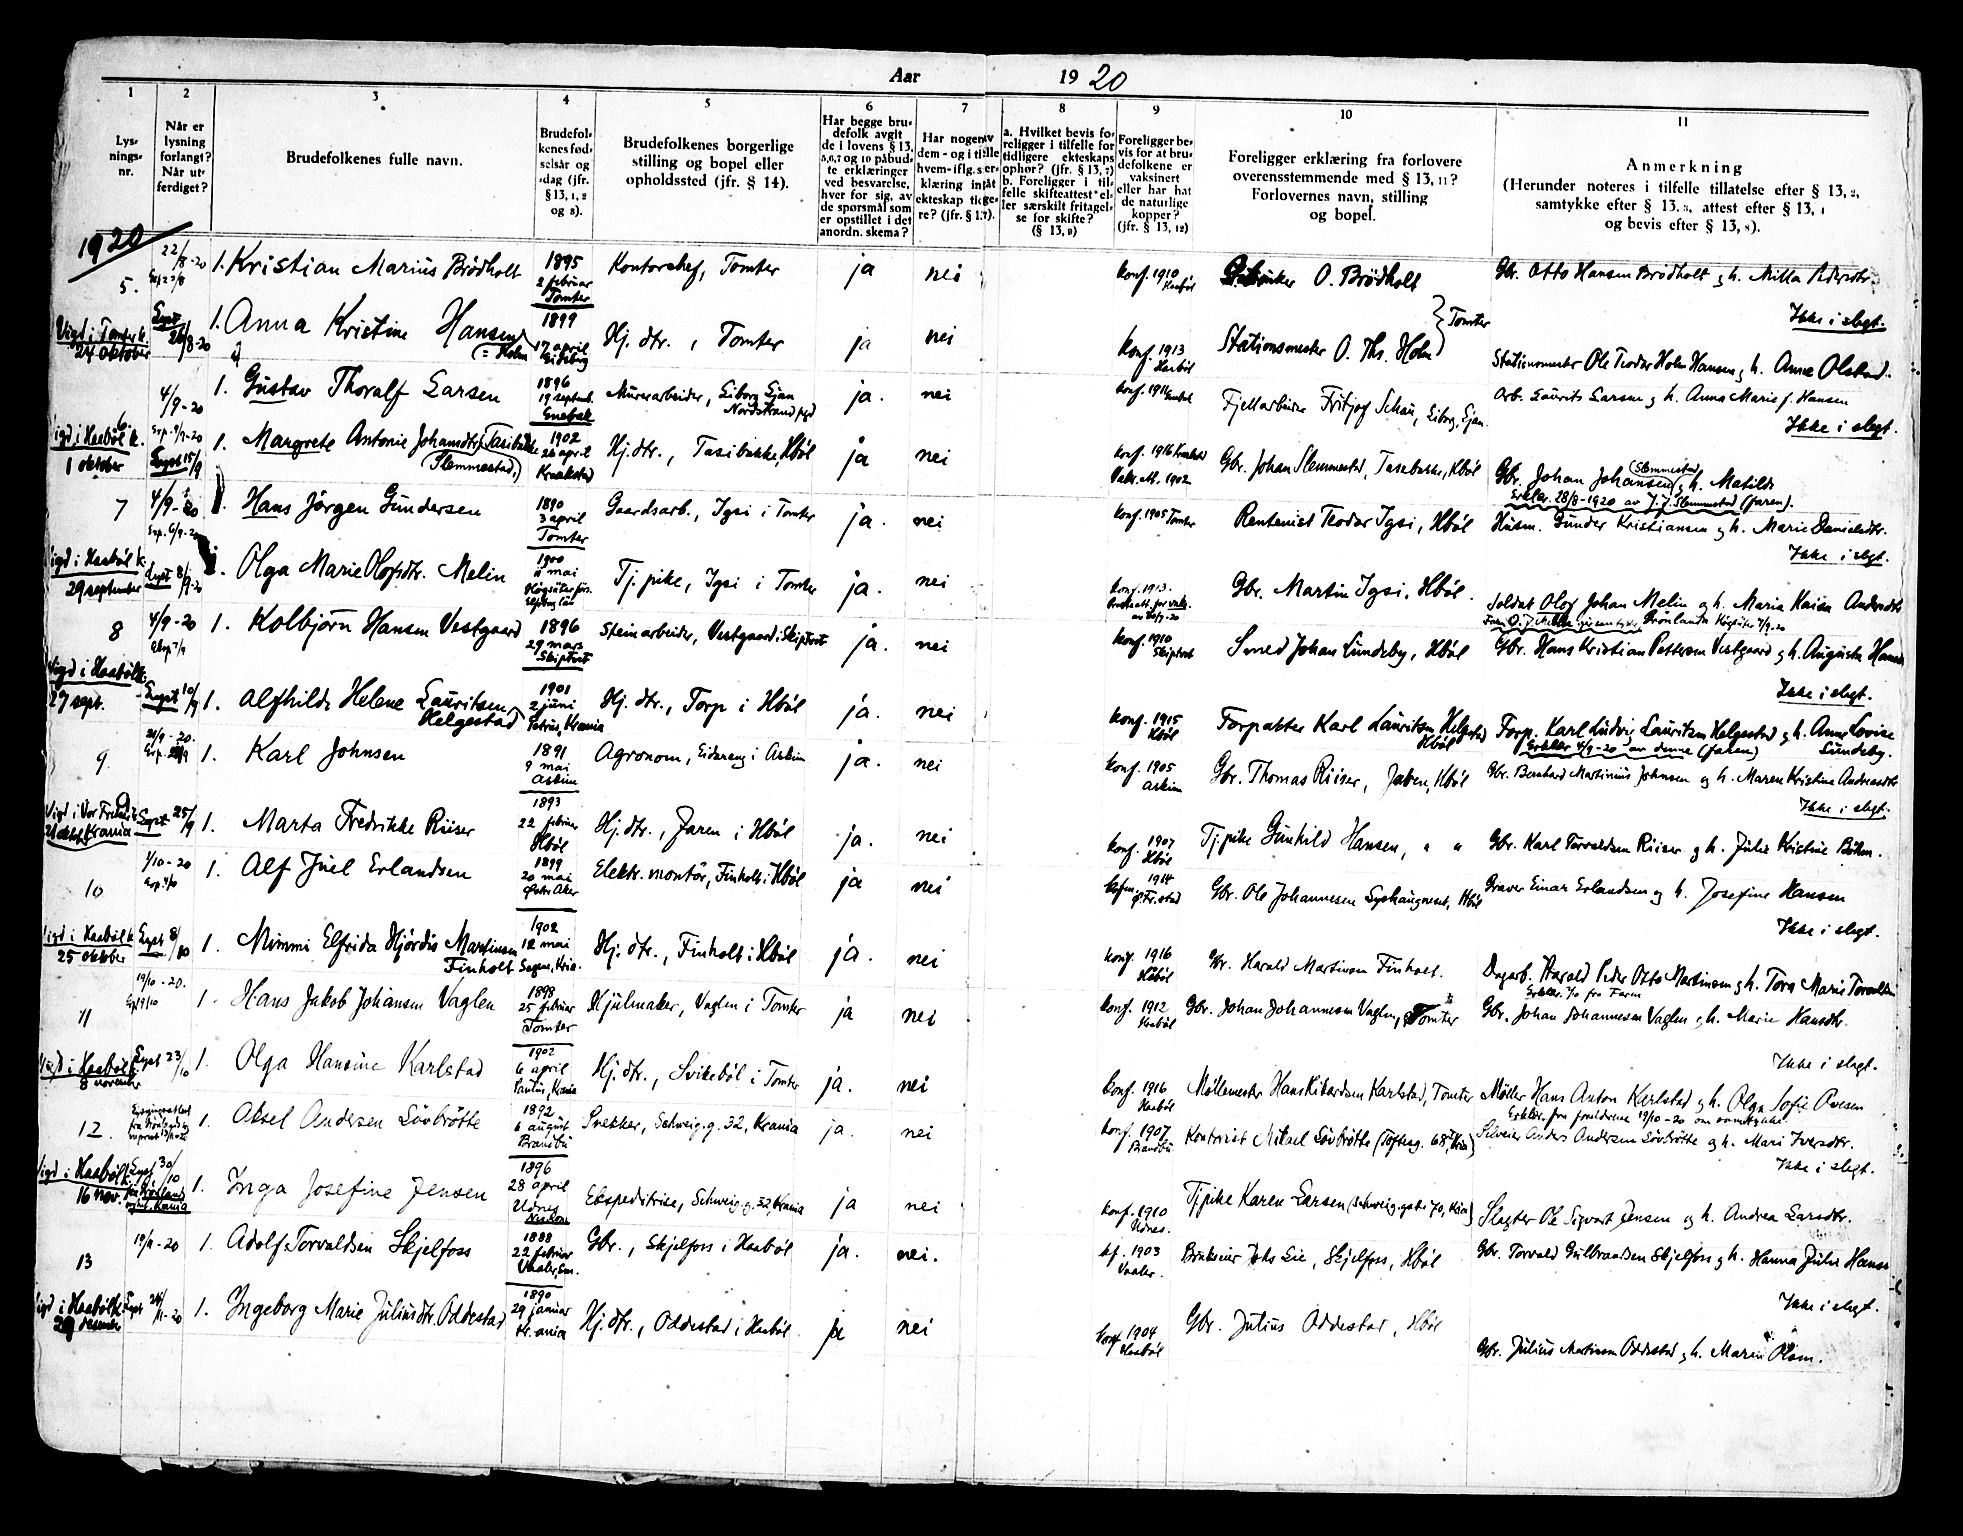 Aar 1920
1 2 3 4 5 6 7 8 9 10 11
Lys-
nings-
nr.
Når er
lysning
forlangt?
Når ut-
ferdiget?
Brudefolkenes fulle navn.
Brudefol-
kenes fød-
selsår og
-dag (jfr.
§ 13, 1, 2
og 8).
Brudefolkenes borgerlige
stilling og bopel eller
opholdssted (jfr. § 14).
Har begge bru-
defolk avgit
de i lovens § 13,
5,6,7 og 10 påbud-
te erklæringer
ved besvarelse,
hver for sig, av
de spørsmål som
er opstillet i det
anordn. skema?
a. Hvilket bevis fo-
religger i tilfelle for
tidligere ekteskaps
ophør? (jfr. § 13, 7)
b. Foreligger i til-
felle skifteattest el-
ler særskilt fritagel-
se for skifte?
(§ 13, 8)
Foreligger be-
vis for at bru-
defolkene er
vaksinert
eller har hat
de naturlige
kopper?
(jfr. § 13, 12)
Foreligger erklæring fra forlovere
overensstemmende med § 13, 11?
Forlovernes navn, stilling
og bopel.
Anmerkning
(Herunder noteres i tilfelle tillatelse efter § 13, 2,
samtykke efter § 13, 3, attest efter § 13, 4
og bevis efter § 13, 8).
1920
5. 22/8-20 1. Kristian Marius Brödholt 1895 2 februar Tomter Kontorchef, Tomter ja nei Konf. 1910 Haabøl O. Brödholt Gbr. Otto Hansen Brödholt g h. Milla
Ikke i slegt.
Vigd i Tomter k. 24 oktober 1. Anna Kristine Hansen (= Holm) 1899 17 april Hj. dtr., Tomter ja nei Konf. 1913 Haabøl Stationsmester O. Ths. Holm } Tomter Stationsmester Ole Teodor Holm Hansen g h. Anne Olstad.
6. 4/9-20 1. Gustav Thoralf Larsen 1896 19 septemb. Enebak Murerarbeider, Eiborg Ljan Nordstrand ja. nei Konf. 1911 Fjellarbeider Fritjof Schau, Eiborg, Ljan. Arb. Laurits Larsen g h. Anna Marie f. Hansen
Ikke i slegt.
Vigd i Haabøl k. 1 oktober Lyst 15/9 1. Margrete Antonie Johansdtr. Tasibukke (Slemmestad) 1902 26 april Kraakstad Hj. dtr., Tasibukke, Hbøl ja nei Konf. 1916 Gbr. Johan Slemmestad, Tasebukke, Hbøl Gbr. Johan Johansen (Slemmestad) g h. Matilde
Erklær. 28/8-1920 av J. J. Slemmestad (faren).
7 4/9-20 1. Hans Jörgen Gundersen 1890 3 april Tomter Gaardsarb., Igsi i Tomter ja. nei Konf. 1905 Tomter Rentenist Teodor Igsi, Hbøl Husm. Gunder Kristiansen g h. Marie Danielsdtr.
Ikke i slegt.
Vigd i Haabøl k. 29 september Lyst 8/9-20 1. Olga Marie Olofsdtr. Melin 1900 11 mai Tj. pike, Igsi i Tomter ja. nei Konf. 1913. Gbr. Martin Igsi, Hbøl. Soldat Olof Johan Melin g h. Maria Kaisa
8 4/9-20 1. Kolbjørn Hansen Vestgaard 1896 29 mars Skiptvet Steinarbeider, Vestgaard i Skiptvet ja. nei Konf. 1910 Skiptvet Smed Johan Lundeby, Hbøl Gbr. Hans Kristian Pettersen Vestgaard g h. Augusta
Ikke i slegt.
Vigd i Haabøl k. 27 sept. Lyst 10/9 1. Alfhilds Helene Lauritsen Helgestad 1901 2 juni Petrus, Krania Hj. dtr., Torp i Hbøl ja. nei Konf. 1915 Hbøl Forpakter Karl Lauritsen Helgestad Hbøl Forp. Karl Ludvig Lauritsen Helgestad g h. Anne Lovise Lundeby.
Erklær 4/9-20 av denne (faren)
9. 21/9-20. 1. Karl Johnsen 1891 9 mai Askim Agronom, Eidareng i Askim ja. nei Konf. 1905 Askim Gbr. Thomas Riiser, Jaren, Hbøl Gbr. Bernhard Martinius Johnsen g h. Maren Kristine Andreasdtr
Ikke i slegt.
Vigd i Vor Frelsers k. Krania Lyst 25/9 1. Marta Fredrikke Riiser 1893 22 februar Hbøl Hj. dtr., Jaren i Hbøl ja. nei Konf. 1907 Hbøl Tj. pike Gunhild Hansen, " " Gbr. Karl Torvaldsen Riiser g h. Julie Kristine Böhm.
10 1/10-20 1. Alf Juel Erlandsen 1899 20 mai Østr. Aker Elektr. montör, Finholt i Hbøl ja nei 1914 Gbr. Ole Johannesen Sychaugneset, Hbøl Graver Einar Erlandsen g h. Josefine Hansen
Ikke i slegt.
Vigd i Haabøl k. 25 oktober Lyst 8/10 1. Mimmi Elfrida Hjördis Martinsen Finholt 1902 12 mai Sagene, Kria. Hj. dtr., Finholt i Hbøl ja. nei Konf. 1916 Haabøl Gbr. Harald Martinsen Finholt. Dagarb. Harald Peder Otto Martinsen g h. Tora Marie
11 19/10-20. 1. Hans Jakob Johansen Vaglen 1898 25 februar Tomter Hjulmaker, Vaglen i Tomter ja nei Konf. 1912 Haabøl Gbr. Johan Johannesen Vaglen, Tomter Gbr. Johan Johannesen Vaglen g h. Marie Hansdtr.
Ikke i slegt.
Vigd i Haabøl k. 8 november Lyst 23/10 1. Olga Hansine Karlstad 1902 6 april Paulus, Krania Hj. dtr., Svikebøl i Tomter ja. nei Konf. 1916 Haabøl Møllemester Hans Rikardsen Karlstad, Tomter Møller Hans Anton Karlstad g h. Olga Sofie
Erklær. fra foreldrene 19/10-20 om samtykke
12. 1. Aksel Andersen Lövbrötte 1892 6 august Brandbu Snekker, Schweig. g. 32, Krania ja. nei Konf. 1907 Brandbu Kontorist Mikael Lövbrötte (Toftesg. 68, Kria) Anders Andersen Lövbrötte g h. Mari Iversdtr.
Ikke i slegt.
Vigd i Haabøl k. 16 nov. Lyst 30/10 1. Inga Josefine Jensen 1896 28 april Udnes Ekspeditrise, Schweig. g. 32, Krania ja nei Konf. 1910 Udnes. Tj pike Karen Larsen (Schweig. gate 70, Kria) Slagter Ole Sigvart Jensen g h. Andrea Larsdtr.
13 19/11-20 1. Adolf Torvaldsen Skjelfoss 1888 22 februar Vaaler, Sm. Gbr., Skjelfoss i Haabøl ja. nei. kf. 1903 Vaaler. Brukseier Johs Lie, Skjelfoss, Hbøl Gbr. Torvald Gulbrandsen Skjelfoss g h. Hanna Julie
Ikke i slegt.
Vigd i Haabøl k. 29 desember Lyst 24/11-20 1. Ingeborg Marie Juliusdtr. Oddestad 1890 29 januar Krania Hj. dtr., Oddestad i Haabøl. ja nei Konf 1904 Haabøl Gbr. Julius Oddestad, Hbøl Gbr. Julius Martinsen Oddestad g h. Maria Olsen.